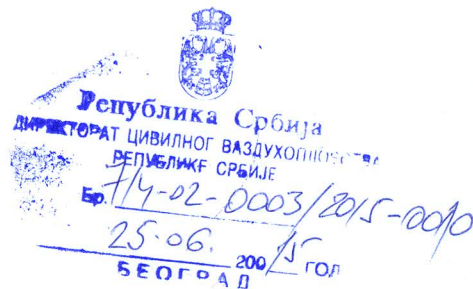 Република Србија
ДИРЕКТОРАТ ЦИВИЛНОГ ВАЗДУХОПЛОВСТВА
РЕПУБЛИКЕ СРБИЈЕ
Бр. 7/4-02-0003/2015-0010
25.06. 200 15 ГОД
БЕОГРАД